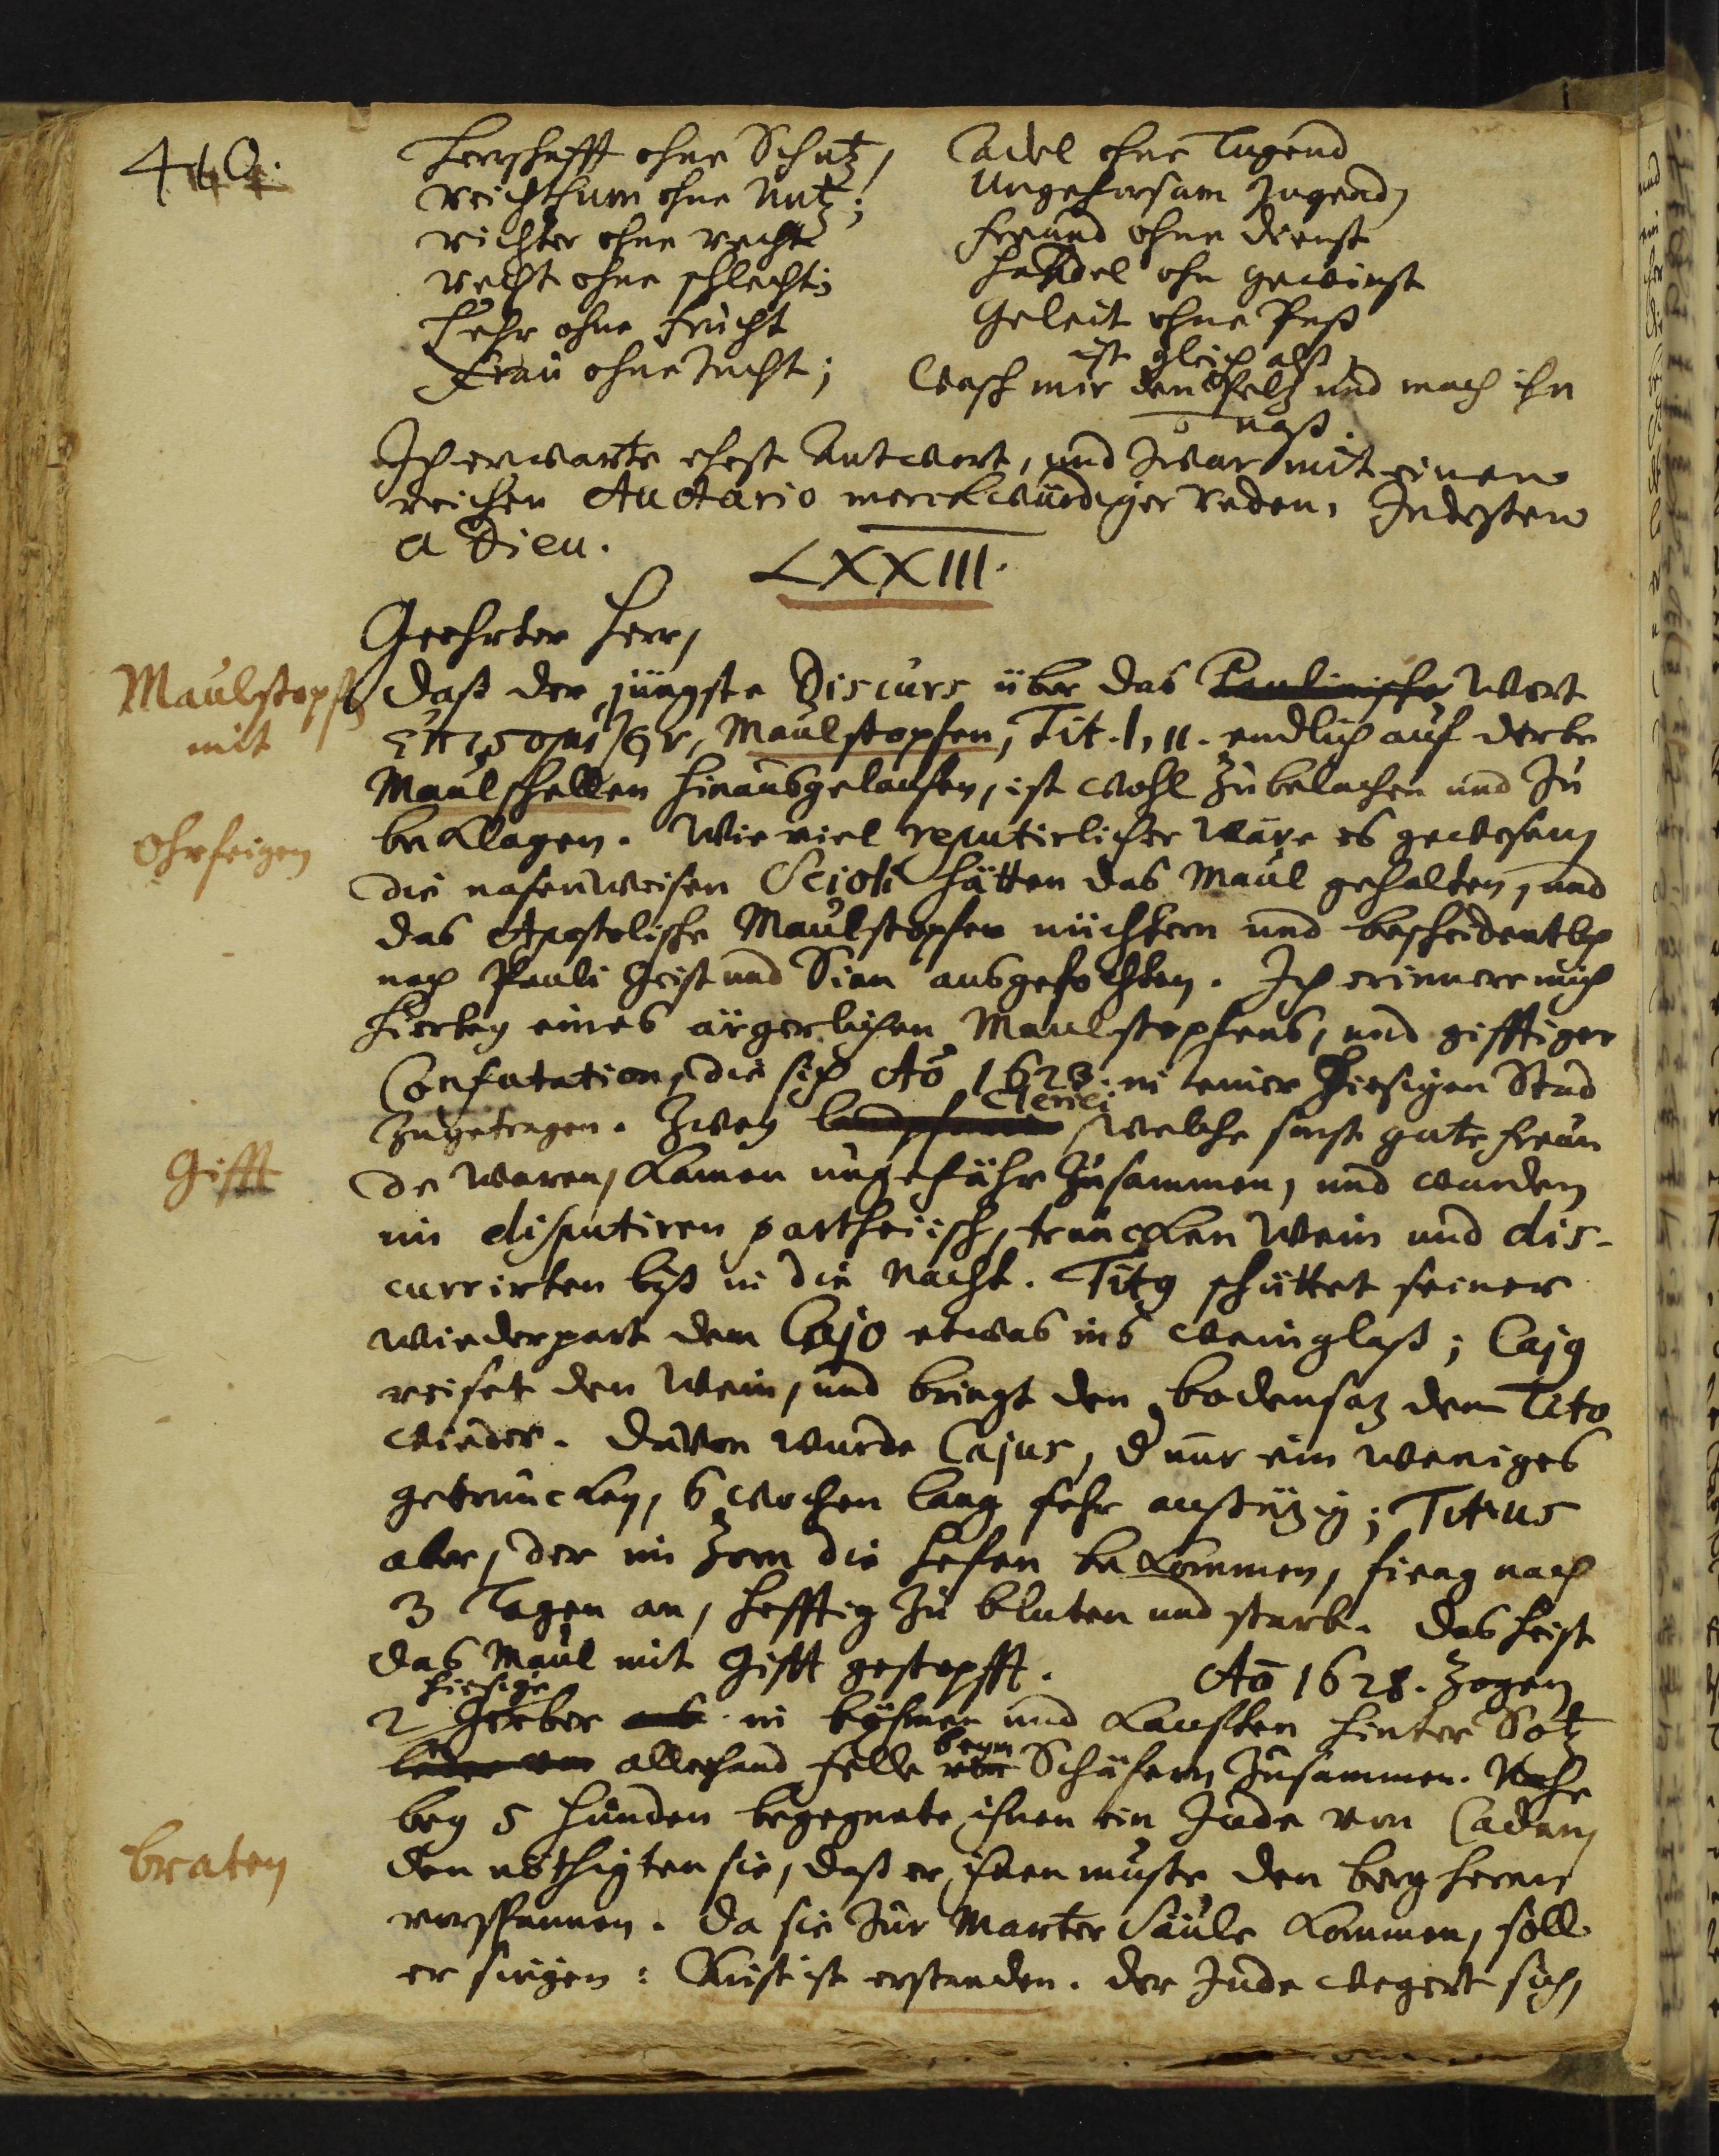 440.
Herrschafft ohne Schutz,
reichthum ohne Nutz;
richter ohne recht
recht ohne schlecht;
Lehr ohne frucht
Frau ohne Zucht;
Adel ohne Tugend
Ungehorsam Jugend,
freund ohne dienst
Handel ohn gewinst
Geleit ohne Paß
ist gleich alß
Wasch mir den Peltz und mach ihn
naß.
Ich erwarte ehest Antwort, und zwar mit einem
reichen Auctario merckwürdiger reden. Indessen
a Dieu.
LXXIII.
Geehrter Herr,
Maulstopfen
mit
Daß der jüngste Discurs über das Paulinische Wort
ἐπιστομίζειν, Maulstopfen, Tit. 1, 11. endlich auf derbe
Maulschellen hinausgelauffen, ist wohl zu belachen und zu
Ohrfeigen
beklagen. Wie viel reputirlicher wäre es gewesen,
die nasenweisen Scioli hätten das Maul gehalten, und
das Apostolische Maulstopfen nüchtern und bescheidentlich
nach Pauli Geist und Sinn ausgefochten. Ich erinnere mich
hierbey eines ärgerlichen Maulstopfens, und gifftiger
Confutation, die sich Aō 1623. in einer hiesigen Stad
Clerici
zugetragen. Zwey welche sonst gute freun
Gifft
de waren, kamen ungefähr zusammen, und wurden
im disputiren partheiisch, truncken Wein und dis-
currirten biß in die Nacht. Titg schüttet seiner
wiederpart dem Cajo etwas ins weinglaß; Cajg
reiset den Wein, und bringt den bodensatz dem Tito
wieder. Davon wurde Cajus, d nur ein weniges
getruncken, 6 wochen lang sehr aussätzig; Titus
aber, der im Zorn die hefen bekommen, fieng nach
3 Tagen an, hefftig zu bluten und starb. Das heist
das Maul mit Gifft gestopfft. Aō 1628. zogen
hiesige
2 Gerber aus in böhmen und kaufften hinter Sotz
beym
allerhand felle von Schäfern zusammen. Nahe
bey 5 hunden begegnete ihnen ein Jude von Cadan,
braten
den nöthigten sie, daß er ihnen muste den berg hernie
vorspannen. Da sie zur Marter Säule kommen, soll
er singen: Christ ist erstanden. Der Jude wegert sich,